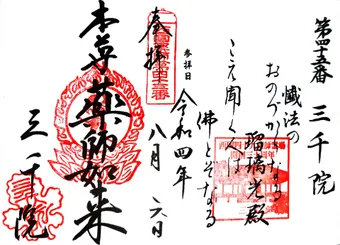 第四十五番 三千院
懺法の
おのづからなる
瑠璃光殿
こえ聞くは
佛とぞなる
参拝日
令和四年
八月六日
奉拝
本尊薬師如来
三千院